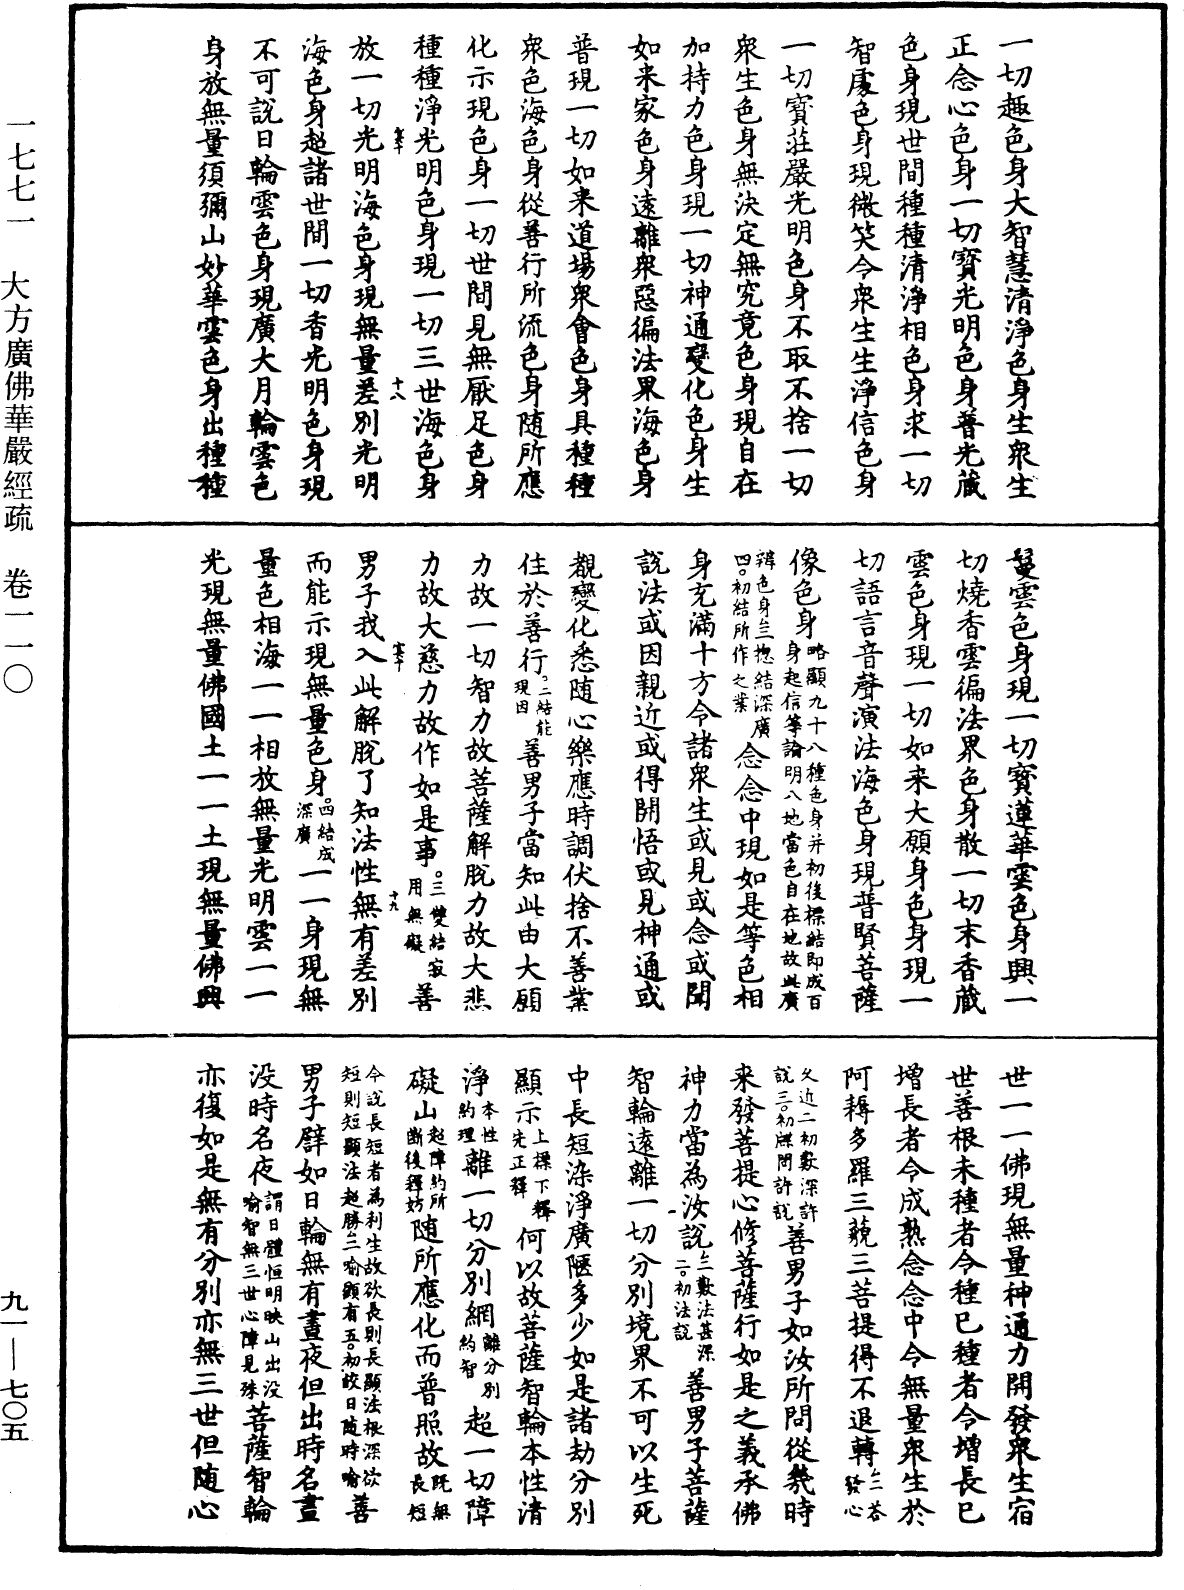 一切趣色身大智慧清淨色身生衆生
正念心色身一切寶光明色身普光藏
色身現世間種種清淨相色身求一切
智處色身現微笑令衆生生淨信色身
一切寶莊嚴光明色身不取不捨一切
衆生色身無決定無究竟色身現自在
加持力色身現一切神通變化色身生
如来家色身遠離衆惡徧法界海色身
普現一切如来道場衆會色身具種種
衆色海色身從善行所流色身随所應
化示現色身一切世間見無厭足色身
種種淨光明色身現一切三世海色身
放一切光明海色身現無量差別光明
海色身超諸世間一切香光明色身現
不可說日輪雲色身現廣大月輪雲色
身放無量須彌山妙華雲色身出種種
鬘雲色身現一切寶蓮華雲色身興一
切燒香雲徧法界色身散一切末香藏
雲色身現一切如来大願身色身現一
切語言音聲演法海色身現普賢菩薩
像色身略顯九十八種色身并初後標結即成百身起信等論明八地當色自在地故此廣
辨色身三揔結深廣四○初結所作之業念念中現如是等色相
身充滿十方令諸衆生或見或念或聞
說法或因親近或得開悟或見神通或
覩變化悉随心樂應時調伏捨不善業
住於善行○二結能現因善男子當知此由大願
力故一切智力故菩薩解脫力故大悲
力故大慈力故作如是事○三雙結寂用無礙善
男子我入此解脫了知法性無有差別
而能示現無量色身○四結成深廣一一身現無
量色相海一一相放無量光明雲一一
光現無量佛國土一一土現無量佛興
世一一佛現無量神通力開發衆生宿
世善根未種者令種已種者令增長已
增長者令成熟念念中令無量衆生於
阿耨多羅三藐三菩提得不退轉二答發心
久近二初歎深許說三○初牒問許說善男子如汝所問從幾時
来發菩提心修菩薩行如是之義承佛
神力當為汝說二歎法甚深二○初法說善男子菩薩
智輪遠離一切分別境界不可以生死
中長短染淨廣陿多少如是諸劫分別
顯示上標下釋先正釋何以故菩薩智輪本性清
淨本性約理離一切分別網離分別約智超一切障
礙山起障約所斷後釋妨随所應化而普照故既無長短
今說長短者為利生故欲長則長顯法根深欲短則短顯法超勝二喻顯有五○初皎日随時喻善
男子譬如日輪無有晝夜但出時名晝
没時名夜謂日體恒明映山出没喻智無三世心障見殊菩薩智輪
亦復如是無有分別亦無三世但随心
一七七一　大方廣佛華嚴經疏　卷一一〇
九一—七〇五